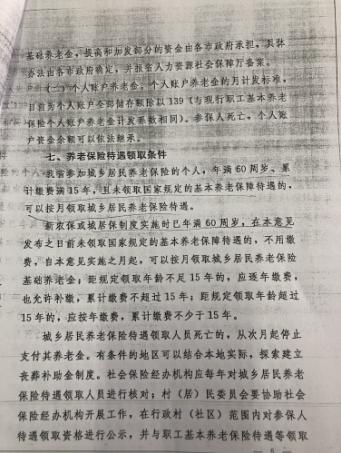 基础养老金，提高和加发部分的资金由各市政府承担，具体
办法由各市政府确定，并报省人力资源社会保障厅备案。
（二）个人账户养老金。个人账户养老金的月计发标准，
目前为个人账户全部储存额除以139（与现行职工基本养老
保险个人账户养老金计发系数相同）。参保人死亡，个人账
户资金余额可以依法继承。
七、养老保险待遇领取条件
我省参加城乡居民养老保险的个人，年满60周岁、累
计缴费满15年，且未领取国家规定的基本养老保障待遇的，
可以按月领取城乡居民养老保险待遇。
新农保或城居保制度实施时已年满60周岁，在本意见
发布之日前未领取国家规定的基本养老保障待遇的，不用缴
费，自本意见实施之月起，可以按月领取城乡居民养老保险
基础养老金；距规定领取年龄不足15年的，应逐年缴费，
也允许补缴，累计缴费不超过15年；距规定领取年龄超过
15年的，应按年缴费，累计缴费不少于15年。
城乡居民养老保险待遇领取人员死亡的，从次月起停止
支付其养老金。有条件的地区可以结合本地实际，探索建立
丧葬补助金制度。社会保险经办机构应每年对城乡居民养老
保险待遇领取人员进行核对；村（居）民委员会要协助社会
保险经办机构开展工作，在行政村（社区）范围内对参保人
待遇领取资格进行公示，并与职工基本养老保险待遇等领取
— 6 —